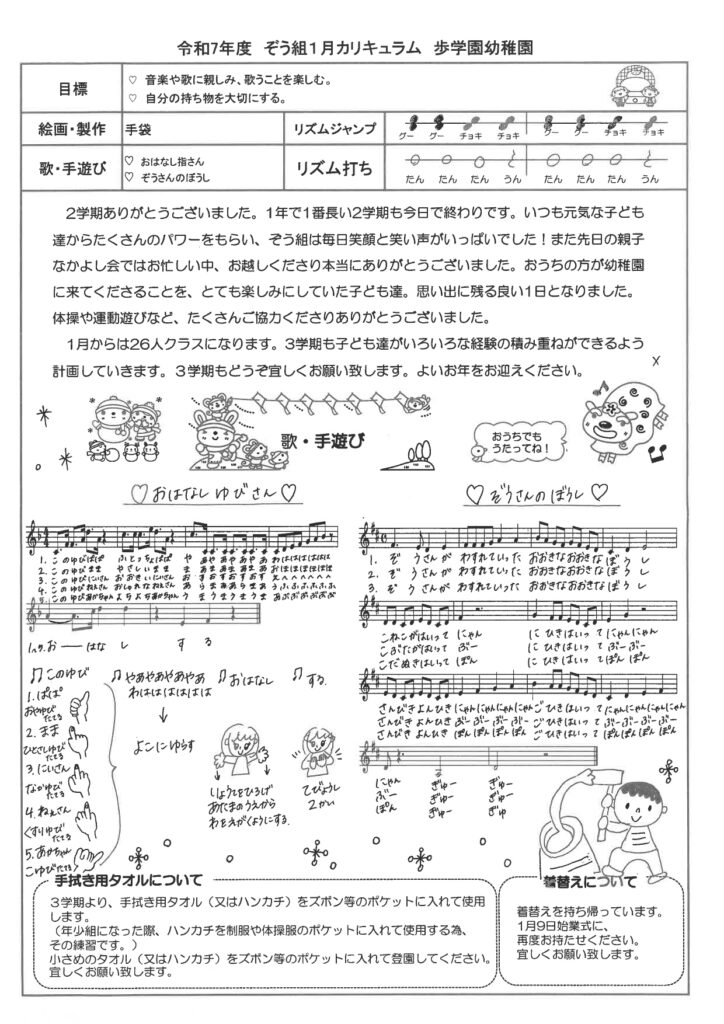 令和7年度　ぞう組1月カリキュラム　歩学園幼稚園
目標
♡ 音楽や歌に親しみ、歌うことを楽しむ。
♡ 自分の持ち物を大切にする。
絵画・製作
手袋
リズムジャンプ
グー グー チョキ チョキ グー グー チョキ チョキ
歌・手遊び
♡ おはなし指さん
♡ ぞうさんのぼうし
リズム打ち
たん たん たん うん たん たん たん うん
2学期ありがとうございました。1年で1番長い2学期も今日で終わりです。いつも元気な子ども
達からたくさんのパワーをもらい、ぞう組は毎日笑顔と笑い声がいっぱいでした！また先日の親子
なかよし会ではお忙しい中、お越しくださり本当にありがとうございました。おうちの方が幼稚園
に来てくださることを、とても楽しみにしていた子ども達。思い出に残る良い1日となりました。
体操や運動遊びなど、たくさんご協力くださりありがとうございました。
1月からは26人クラスになります。3学期も子ども達がいろいろな経験の積み重ねができるよう
計画していきます。3学期もどうぞ宜しくお願い致します。よいお年をお迎えください。
歌・手遊び
おうちでも
うたってね！
♡おはなしゆびさん♡
1. このゆびぱぱ ふとっちょぱぱ や あやあやあやあ わはははははは
2. このゆびまま やさしいまま ま あまあまあまあ
3. このゆびにいさん おおきいにいさん お すおすおすおす
4. このゆびねえさん
5. このゆびあかちゃん よちよちあかちゃん う まうまうまうま あぶあぶあぶあぶ
お はなし する
♫このゆび
1. ぱぱ
おやゆび
たてる
2. まま
ひとさしゆび
たてる
3. にいさん
なかゆび
たてる
4. ねえさん
くすりゆび
たてる
5. あかちゃん
こゆびたてる
♫やあやあやあやあ
わはははははは
↓
よこにゆらす
♫おはなし
りょうてをひろげ
あたまのうえから
わをえがくようにする
♫する
てびょうし
2かい
♡ぞうさんのぼうし♡
1. ぞ うさんが わすれていった おおきなおおきな ぼ う し
2. ぞ うさんが わすれていった おおきなおおきな ぼ う し
3. ぞ うさんが わすれていった おおきなおおきな ぼ う し
こねこがはいって にゃん に ひきはいっ て にゃんにゃん
こぶたがはいって ぶー に ひきはいっ て ぶーぶー
こだぬきはいって ぽん に ひきはいっ て ぽんぽん
さんびきよんひき にゃんにゃんにゃんにゃん ごひきはいって にゃんにゃんにゃんにゃん
さんびきよんひき ぶーぶーぶーぶー ごひきはいって ぶーぶーぶーぶー
さんびきよんひき ぽんぽんぽんぽん ごひきはいって ぽんぽんぽんぽん
にゃん ぎゅー ぎゅー
ぶー ぎゅー ぎゅー
ぽん ぎゅー ぎゅー
手拭き用タオルについて
3学期より、手拭き用タオル（又はハンカチ）をズボン等のポケットに入れて使用
します。
（年少組になった際、ハンカチを制服や体操服のポケットに入れて使用する為、
その練習です。）
小さめのタオル（又はハンカチ）をズボン等のポケットに入れて登園してください。
宜しくお願い致します。
着替えについて
着替えを持ち帰っています。
1月9日始業式に、
再度お持たせください。
宜しくお願い致します。